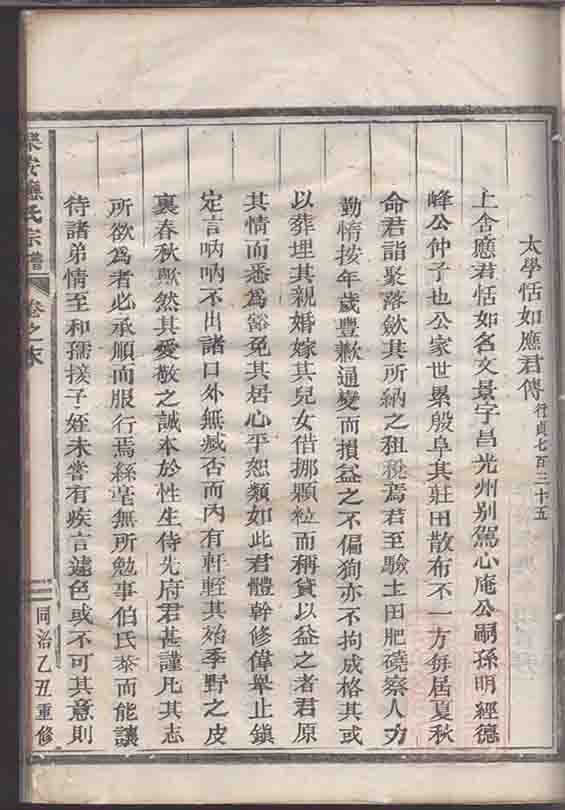 太學恬如應君傳 行貞七百三十五
上舍應君恬如名文景字昌光州别駕心庵公嗣孫明經德
峰公仲子也公家世累殷阜其莊田散布不一方毎居夏秋
命君詣聚落歛其所納之租稅焉君至驗土田肥磽察人力
勤惰按年歲豐歉通變而損益之不偏狥亦不拘成格其或
以葬埋其親婚嫁其兒女借挪顆粒而稱貸以益之者君原
其情而悉爲豁免其居心平恕類如此君體幹修偉舉止鎮
定言吶吶不出諸口外無臧否而内有軒輊其殆季野之皮
裏春秋歟然其愛敬之誠本於性生侍先府君甚謹凡其志
所欲爲者必承順而服行焉絲毫無所勉事伯氏恭而能讓
待諸弟情至和孺接子姪未嘗有疾言遽色或不可其意則
安應氏宗譜 卷之末 同治乙丑重修